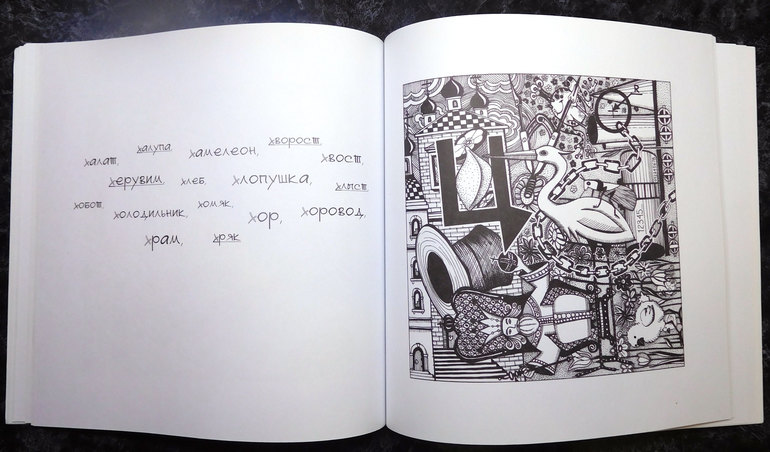 халат, халупа, хамелеон, хворост, хвост,
херувим, хлеб, хлопушка, хлыст
хобот, холодильник, хомяк, хор, хоровод,
храм, хряк
Ц
R
12345